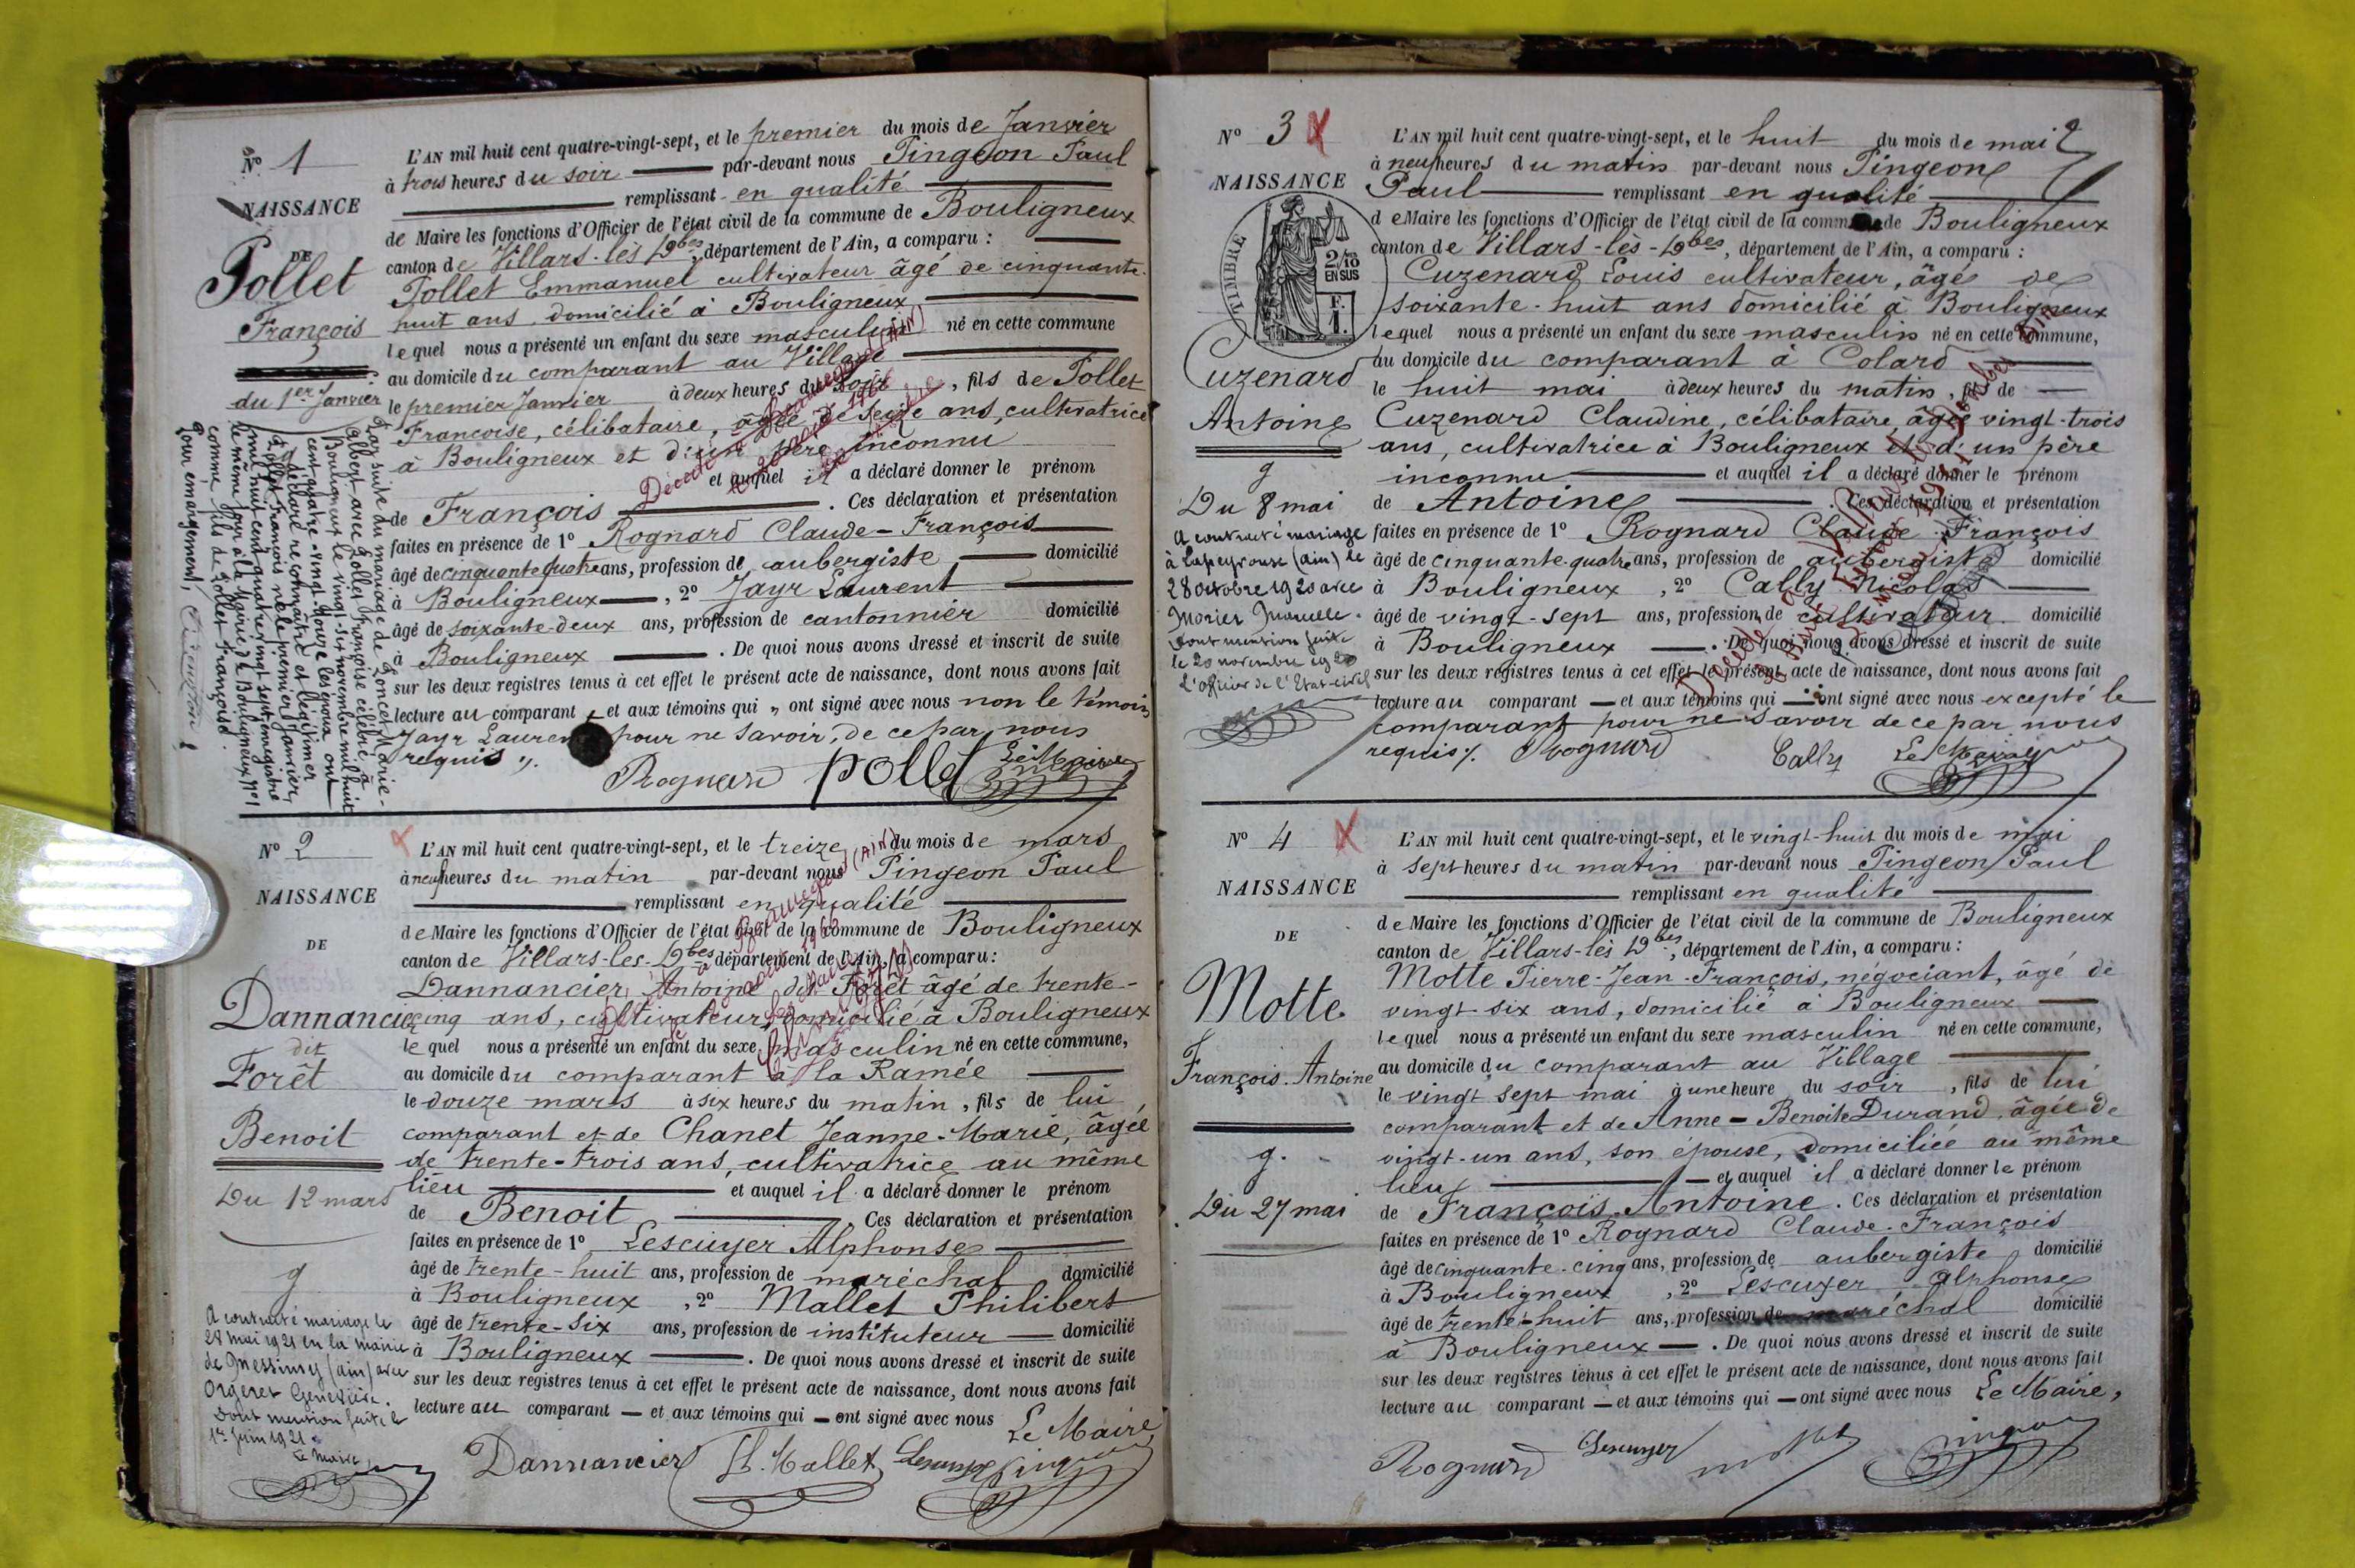 N° 1
NAISSANCE
DE
Pollet
François
du 1er Janvier
L'AN mil huit cent quatre-vingt-sept, et le premier du mois de Janvier
à trois heures du soir par-devant nous Pingeon Paul
remplissant en qualité
de Maire les fonctions d'Officier de l'état civil de la commune de Bouligneux
canton de Villars-les-Dbes, département de l'Ain, a comparu :
Pollet Emmanuel cultivateur âgé de cinquante-
huit ans domicilié à Bouligneux
lequel nous a présenté un enfant du sexe masculin né en cette commune
au domicile du comparant au Village
le premier Janvier à deux heures du soir, fils de Pollet
Françoise, célibataire, âgée de seize ans, cultivatrice
à Bouligneux et d'un père inconnu
et auquel il a déclaré donner le prénom
de François. Ces déclaration et présentation
faites en présence de 1° Rognard Claude-François
âgé de cinquante quatre ans, profession de aubergiste domicilié
à Bouligneux, 2° Jayr Laurent
âgé de soixante-deux ans, profession de cantonnier domicilié
à Bouligneux. De quoi nous avons dressé et inscrit de suite
sur les deux registres tenus à cet effet le présent acte de naissance, dont nous avons fait
lecture au comparant et aux témoins qui ont signé avec nous non le témoin
Jayr Laurent pour ne savoir, de ce par nous
requis.
Rognard Pollet Le Maire
Par suite du mariage de Poncet Marie-
Albert avec Pollet Françoise célébré à
Bouligneux le vingt-six novembre mil huit
cent quatre-vingt-douze les époux ont
déclaré reconnaître et légitimer
Pollet François né le premier Janvier
mil huit cent quatre vingt sept, enregistré
le même jour à la Mairie de Bouligneux N° 1
comme fils de Pollet Françoise.
Pour émargement,
N° 2
NAISSANCE
DE
Dannancier
dit
Forêt
Benoit
Du 12 mars
g
A contracté mariage le
28 mai 1921 en la mairie
de Messimy (ain) avec
Orgeret Geneviève.
Dont mention faite le
1er Juin 1921
Le Maire
L'AN mil huit cent quatre-vingt-sept, et le treize du mois de mars
à neuf heures du matin par-devant nous Pingeon Paul
remplissant en qualité
de Maire les fonctions d'Officier de l'état civil de la commune de Bouligneux
canton de Villars-les-Dbes département de l'Ain, a comparu :
Dannancier Antoine dit Forêt âgé de trente-
cinq ans, cultivateur, domicilié à Bouligneux
lequel nous a présenté un enfant du sexe masculin né en cette commune,
au domicile du comparant à la Ramée
le douze mars à six heures du matin, fils de lui
comparant et de Chanel Jeanne-Marie, âgée
de trente-trois ans, cultivatrice au même
lieu et auquel il a déclaré donner le prénom
de Benoit. Ces déclaration et présentation
faites en présence de 1° Lescuyer Alphonse
âgé de trente-huit ans, profession de maréchal domicilié
à Bouligneux, 2° Mallet Philibert
âgé de trente-six ans, profession de instituteur domicilié
à Bouligneux. De quoi nous avons dressé et inscrit de suite
sur les deux registres tenus à cet effet le présent acte de naissance, dont nous avons fait
lecture au comparant et aux témoins qui ont signé avec nous Le Maire,
Dannancier Ph. Mallet Lescuyer Pingeon
N° 3
NAISSANCE
TIMBRE
2/10
EN SUS
Cuzenard
Antoine
g
Du 8 mai
A contracté mariage
à Lapeyrouse (ain) le
28 octobre 1920 avec
Morier Marcelle.
Dont mention faite
le 20 novembre 1920
L'Officier de l'Etat-civil
L'AN mil huit cent quatre-vingt-sept, et le huit du mois de mai
à neuf heures du matin par-devant nous Pingeon
Paul remplissant en qualité
de Maire les fonctions d'Officier de l'état civil de la commune de Bouligneux
canton de Villars-lès-Dbes, département de l'Ain, a comparu :
Cuzenard Louis cultivateur, âgé de
soixante-huit ans domicilié à Bouligneux
lequel nous a présenté un enfant du sexe masculin né en cette commune,
au domicile du comparant à Colard
le huit mai à deux heures du matin, fils de
Cuzenard Claudine, célibataire, âgée vingt-trois
ans, cultivatrice à Bouligneux et d'un père
inconnu et auquel il a déclaré donner le prénom
de Antoine. Ces déclaration et présentation
faites en présence de 1° Rognard Claude-François
âgé de cinquante-quatre ans, profession de aubergiste domicilié
à Bouligneux, 2° Cally Nicolas
âgé de vingt-sept ans, profession de cultivateur domicilié
à Bouligneux. De quoi nous avons dressé et inscrit de suite
sur les deux registres tenus à cet effet le présent acte de naissance, dont nous avons fait
lecture au comparant et aux témoins qui ont signé avec nous excepté le
comparant pour ne savoir de ce par nous
requis. Rognard Cally Le Maire
N° 4
NAISSANCE
DE
Motte
François-Antoine
g.
Du 27 mai
L'AN mil huit cent quatre-vingt-sept, et le vingt-huit du mois de mai
à sept heures du matin par-devant nous Pingeon Paul
remplissant en qualité
de Maire les fonctions d'Officier de l'état civil de la commune de Bouligneux
canton de Villars-lès Dbes, département de l'Ain, a comparu :
Motte Pierre-Jean-François, négociant, âgé de
vingt-six ans, domicilié à Bouligneux
lequel nous a présenté un enfant du sexe masculin né en cette commune,
au domicile du comparant au Village
le vingt sept mai à une heure du soir, fils de lui
comparant et de Anne-Benoite Durand, âgée de
vingt-un ans, son épouse, domiciliée au même
lieu et auquel il a déclaré donner le prénom
de François-Antoine. Ces déclaration et présentation
faites en présence de 1° Rognard Claude-François
âgé de cinquante-cinq ans, profession de aubergiste domicilié
à Bouligneux, 2° Lescuyer Alphonse
âgé de trente-huit ans, profession de maréchal domicilié
à Bouligneux. De quoi nous avons dressé et inscrit de suite
sur les deux registres tenus à cet effet le présent acte de naissance, dont nous avons fait
lecture au comparant et aux témoins qui ont signé avec nous Le Maire,
Rognard Lescuyer